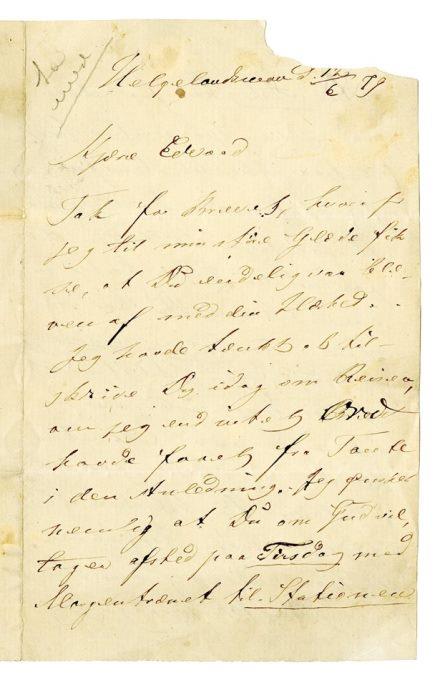 ta
med
Helgelandsmoen d. 12/6 79
Kjære Edvard
Tak for Brevet, hvoraf
jeg til min store Glæde fik
se, at Du endelig var ble-
ven af med din Hæshed.
Jeg havde tænkt at til-
skrive Dig idag om Reisen,
om jeg end intet Ord
havde faaet fra Tante
i den Anledning. Jeg ønsker
nemlig at Du om
tager afsted paa Tirsdag med
Morgentrænet til Stationen